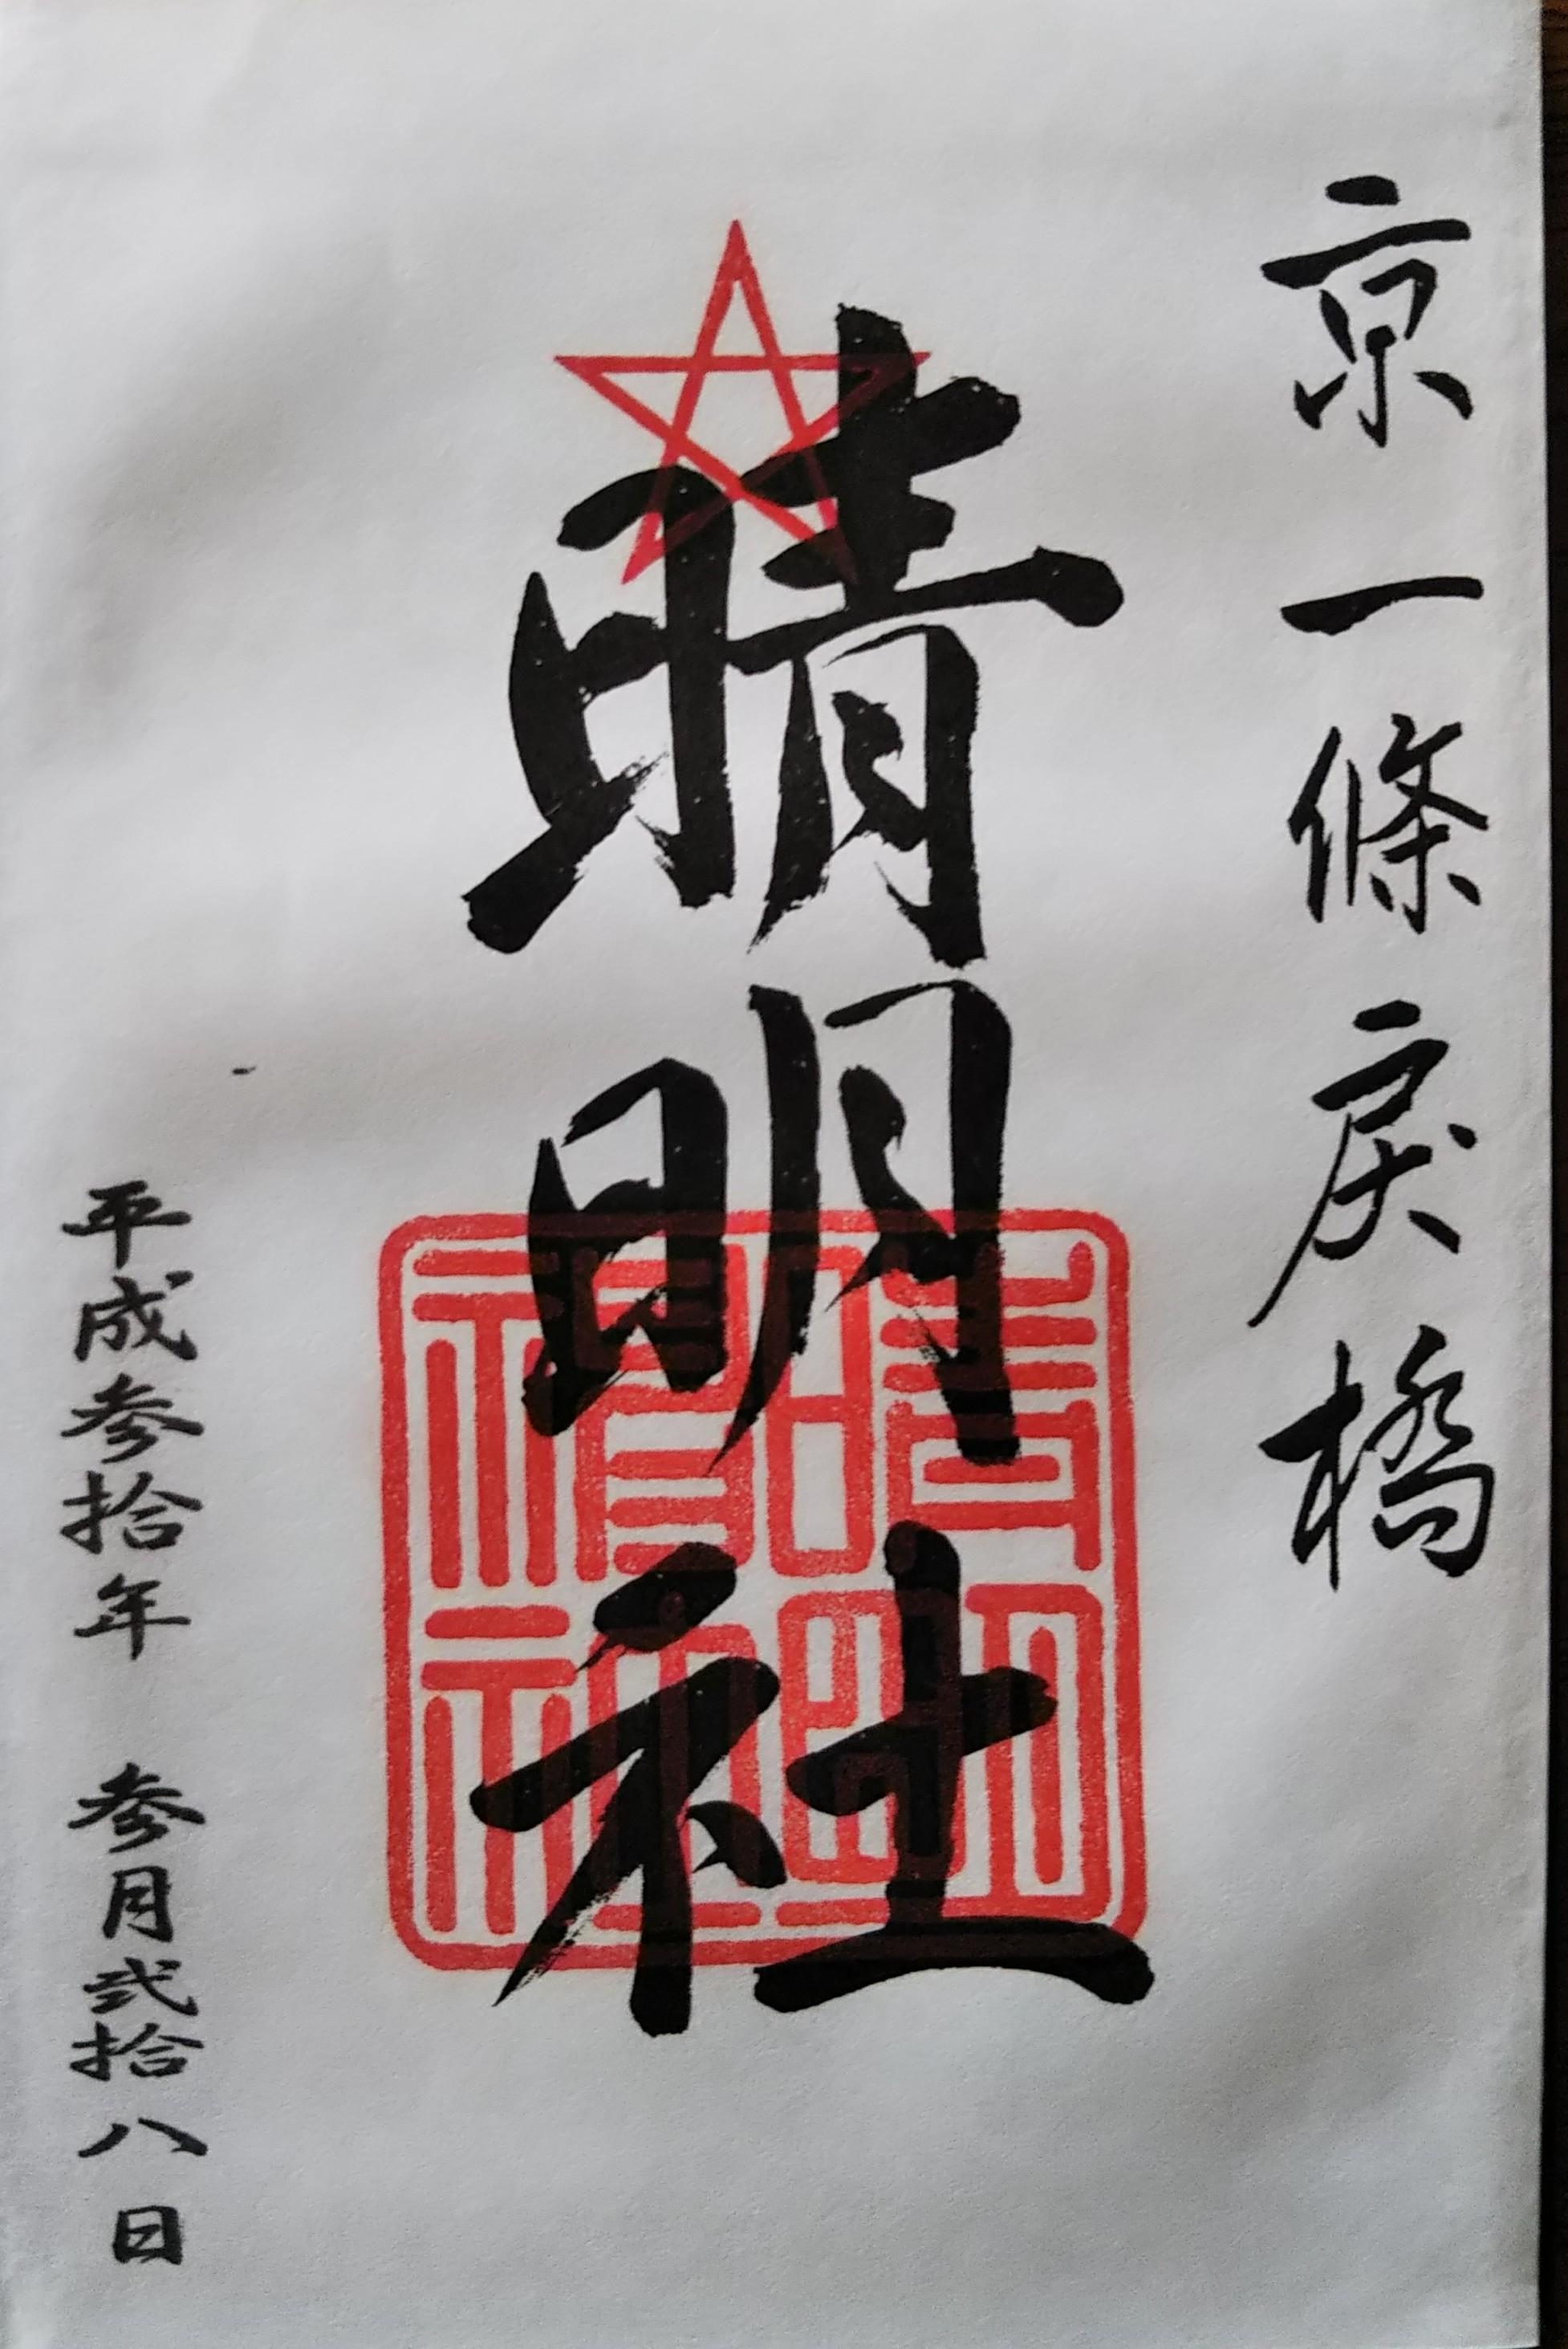 京一條戾橋
晴明社
晴明神社
平成参拾年 参月弐拾八日